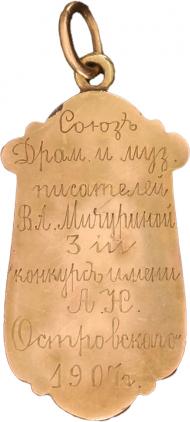 Союзъ
Драм. и муз.
писателей
В.А. Мичуриной
3 ій
конкурсъ имени
А.Н.
Островского
1907 г.